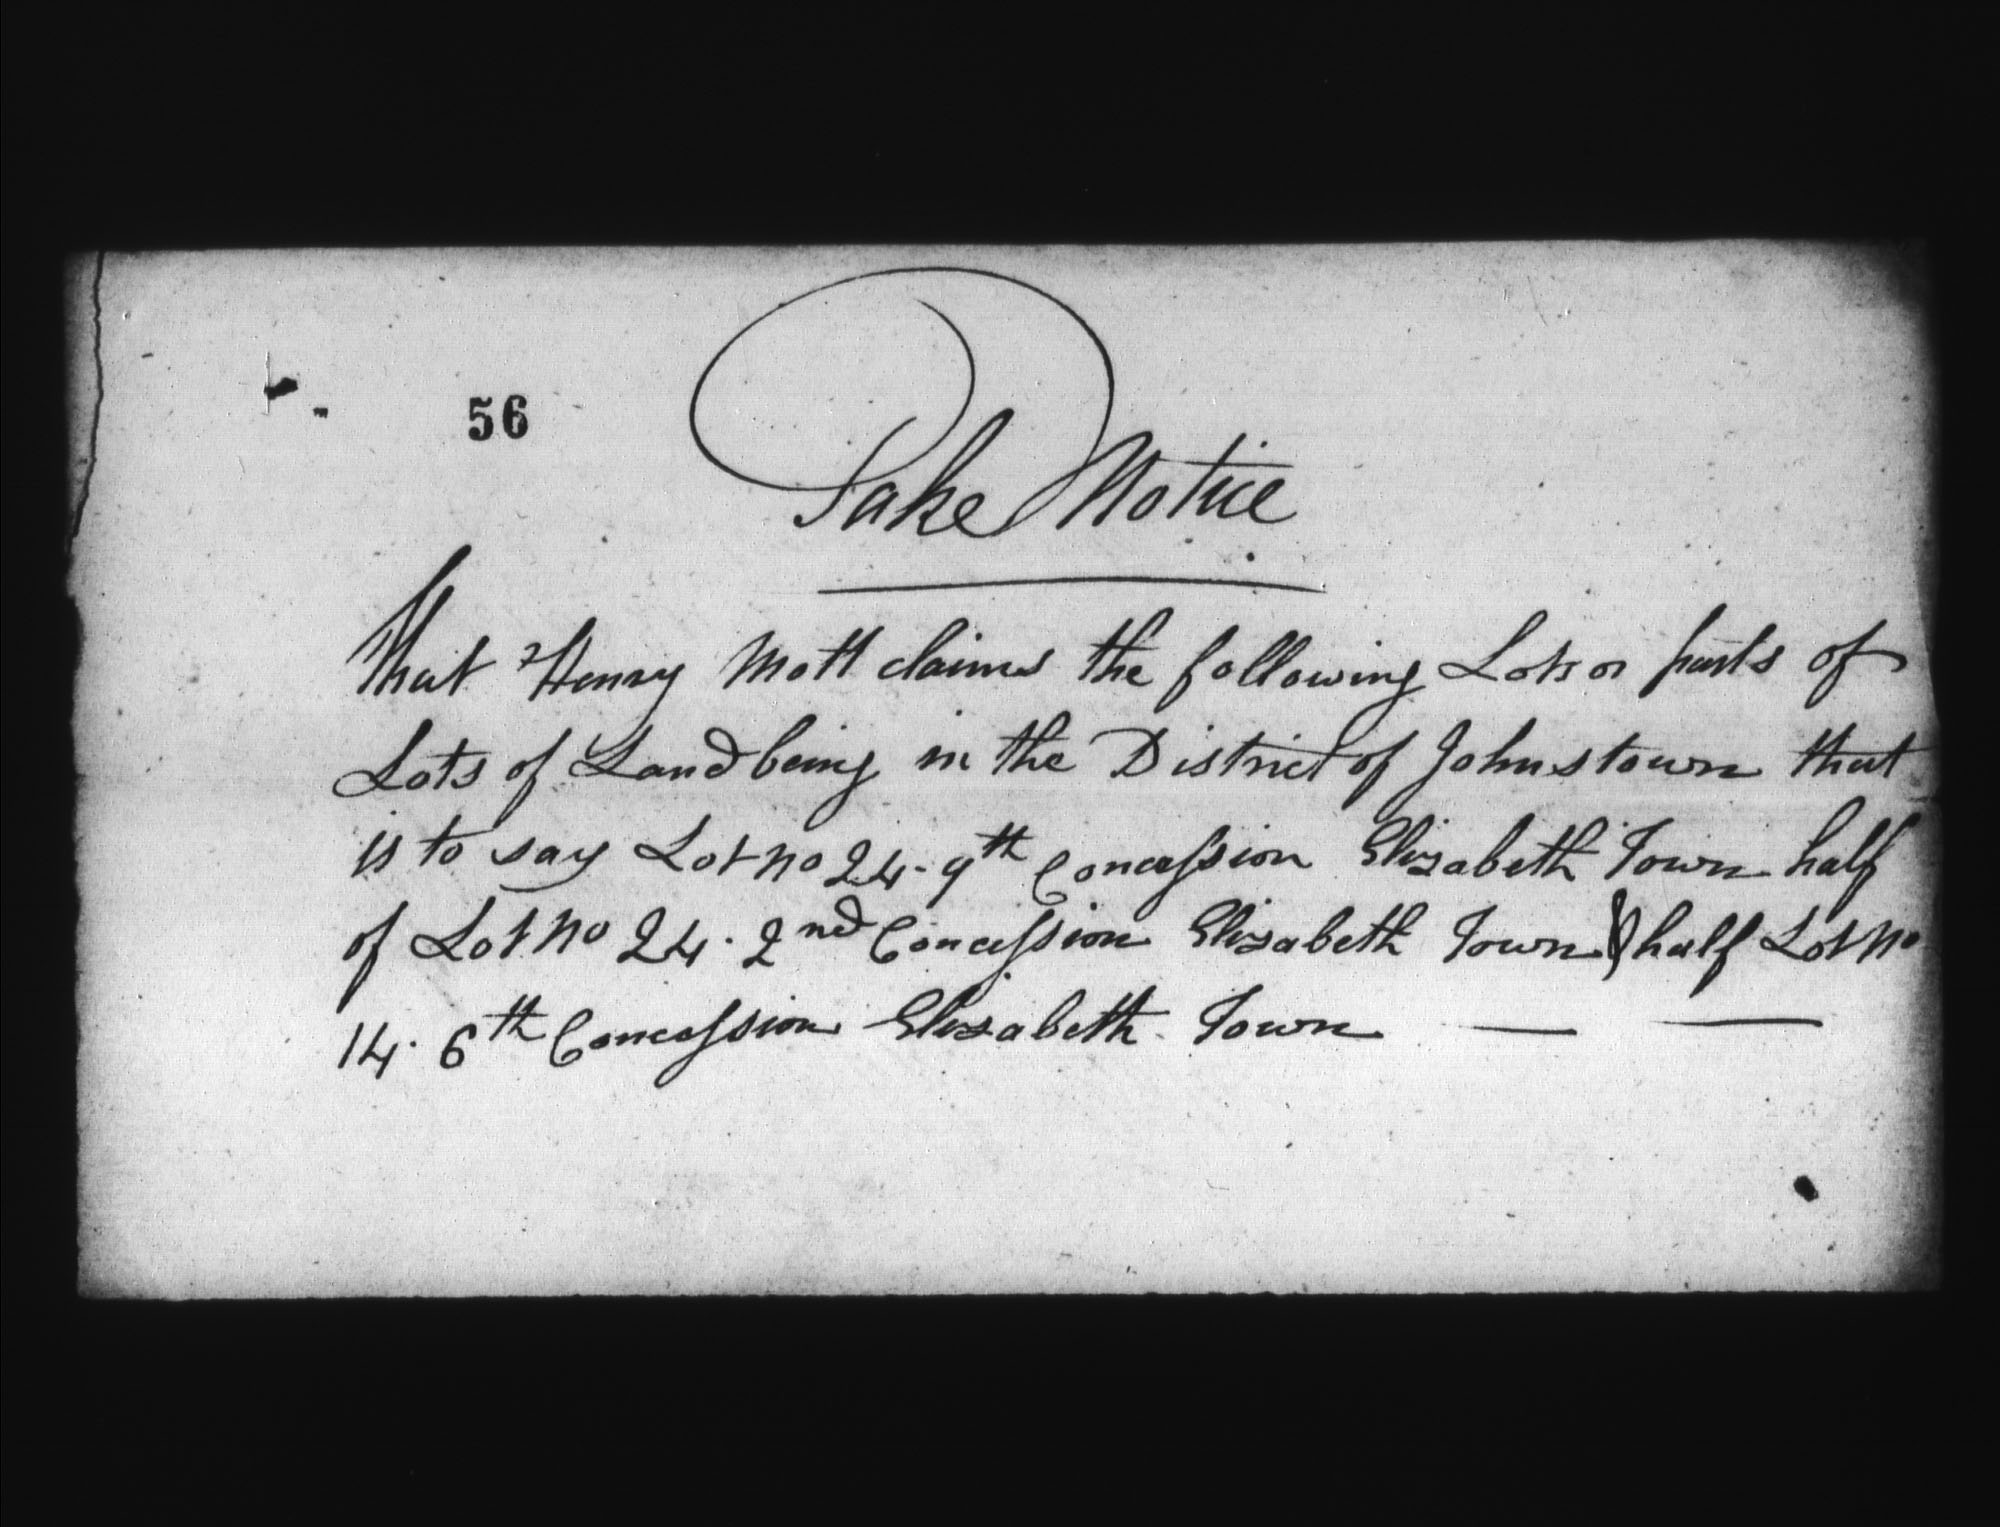 56
Take Notice
That Henry Mott claims the following Lots or parts of
Lots of Land being in the District of Johnstown that
is to say Lot No 24. 9th Concession Elizabeth Town half
of Lot No 24. 2nd Concession Elizabeth Town & half Lot No
14. 6th Concession Elizabeth Town — —